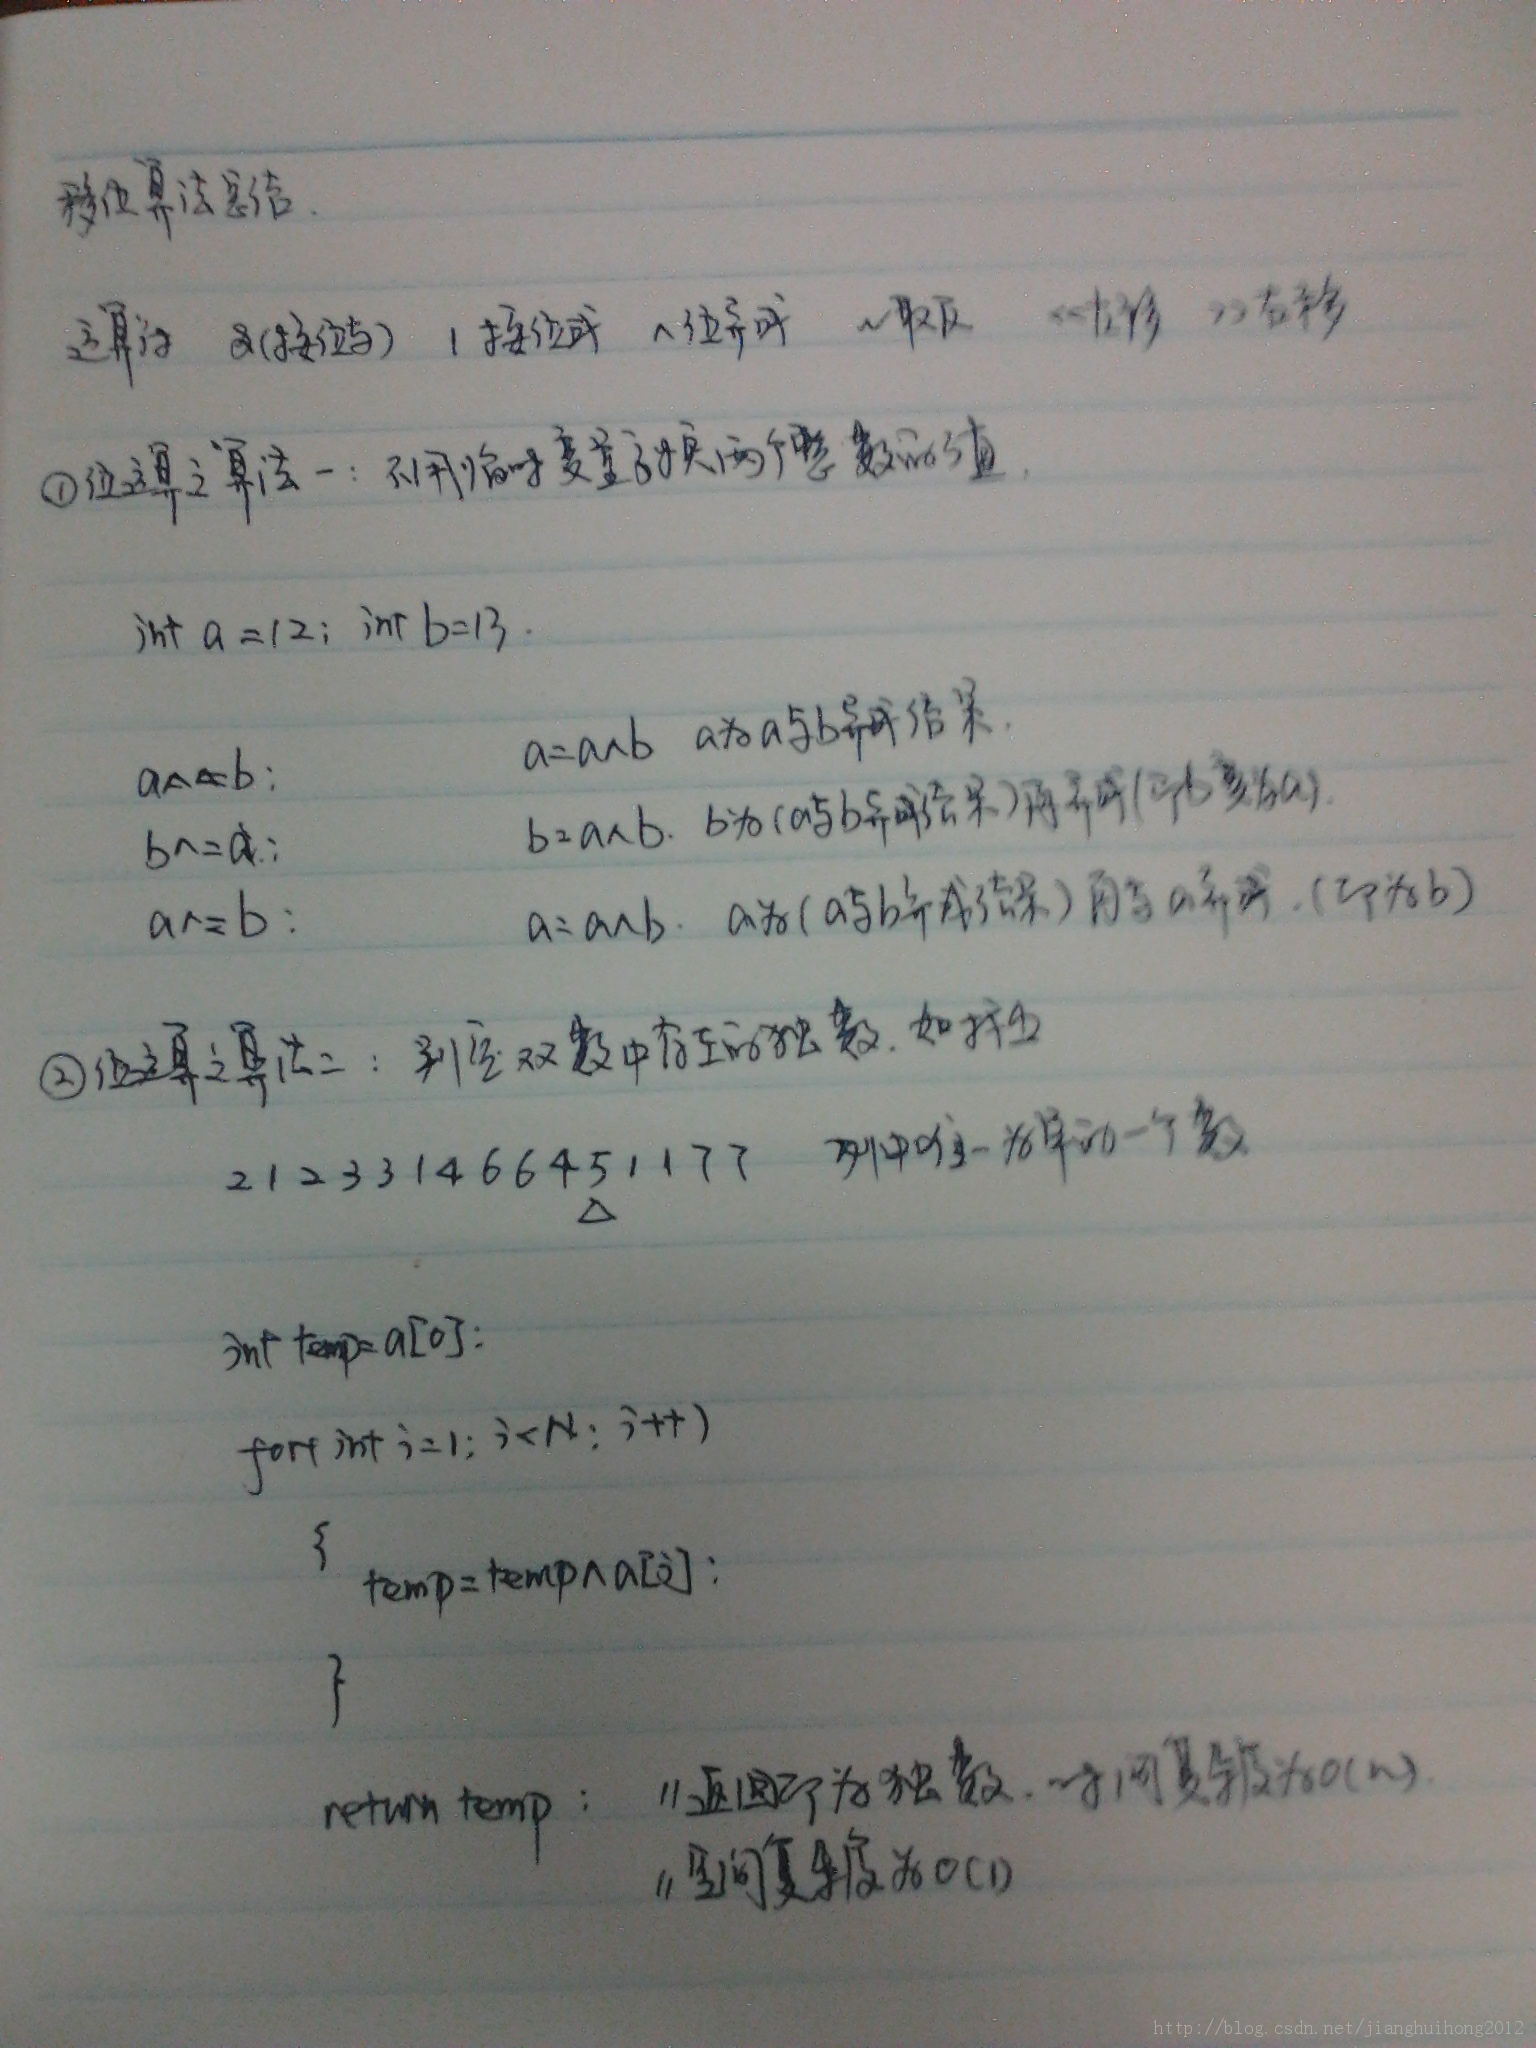 移位算法总结.
运算法 &(按位与) | 按位或 ^位异或 ~取反 <<左移 >>右移
①位运算之算法一: 不用临时变量交换两个整数的值.
int a=12; int b=13.
a^=b; a=a^b a为a与b异或结果.
b^=a; b=a^b. b为(a与b异或结果)再异或(即b变为a).
a^=b; a=a^b. a为(a与b异或结果)再与a异或.(即为b)
②位运算之算法二: 判定双数中存在的独数. 如找出
2 1 2 3 3 1 4 6 6 4 5 1 1 7 7 列中唯一为单的一个数
△
int temp=a[0];
for(int i=1; i<N; i++)
{
temp=temp^a[i];
}
return temp; //返回即为独数. 时间复杂度为O(n).
//空间复杂度为O(1)
http://blog.csdn.net/jianghuihong2012